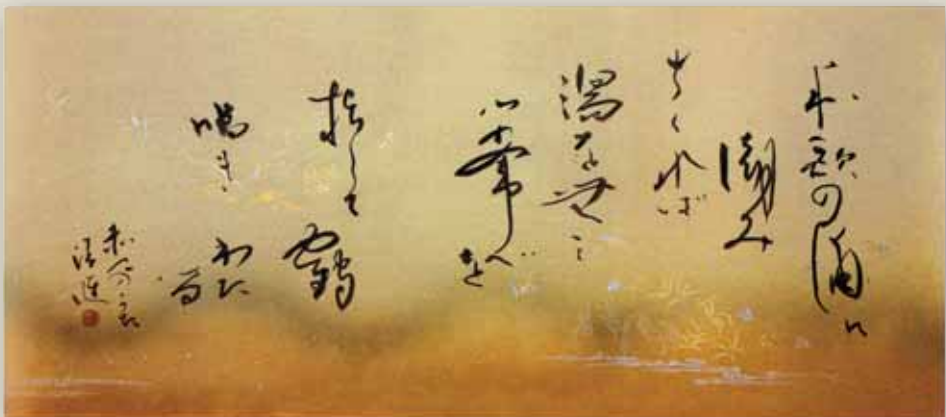 和歌の浦に
潮み
ちくれば
潟を無み
葦べを
指して鶴
鳴きわた
る
赤人のうた